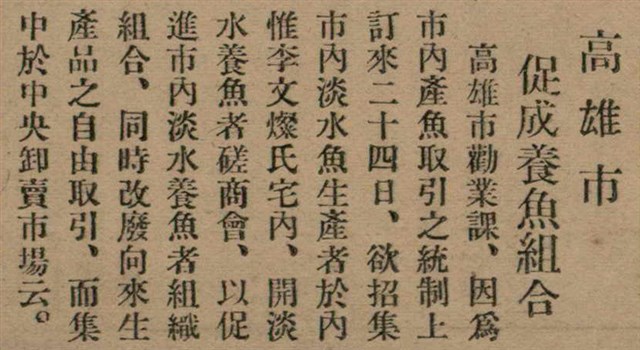 高雄市
促成養魚組合
高雄市勸業課、因爲
市內產魚取引之統制上
訂來二十四日、欲招集
市內淡水魚生產者於內
惟李文燦氏宅內、開淡
水養魚者磋商會、以促
進市內淡水養魚者組織
組合、同時改廢向來生
產品之自由取引、而集
中於中央卸賣市場云。